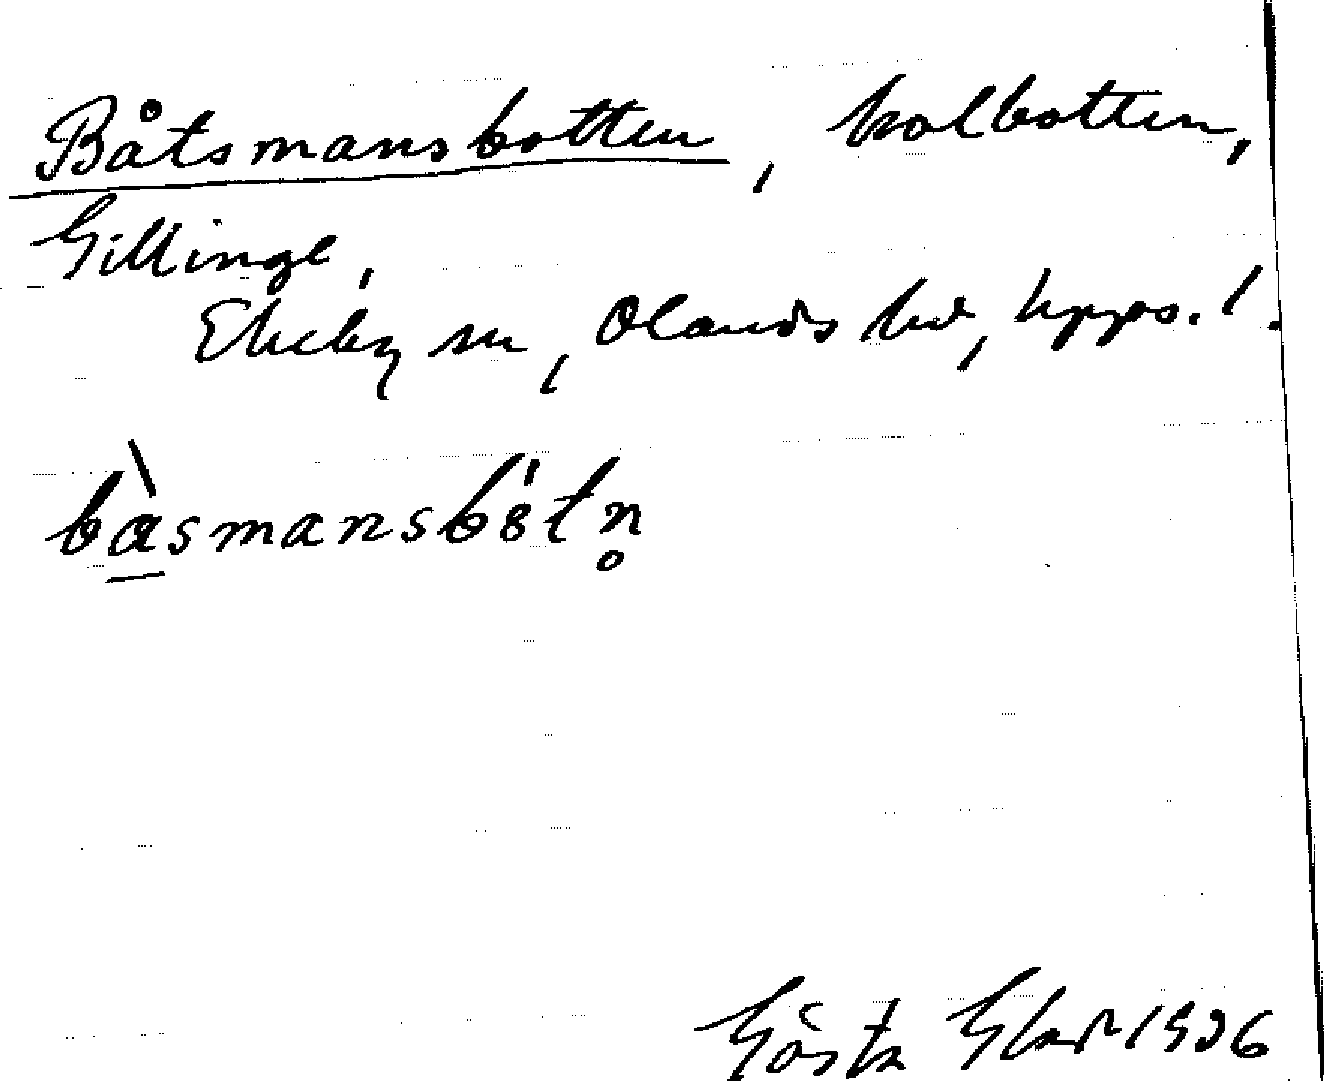 Båtsmansbotten, kolbotten,
Gillinge,
Ekeby sn, Olands hd, Upps. l.
bàsmansbòtn̥
Gösta 1936